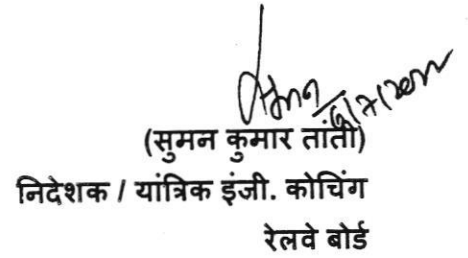 (सुमन कुमार तांती)
निदेशक / यांत्रिक इंजी. कोचिंग
रेलवे बोर्ड